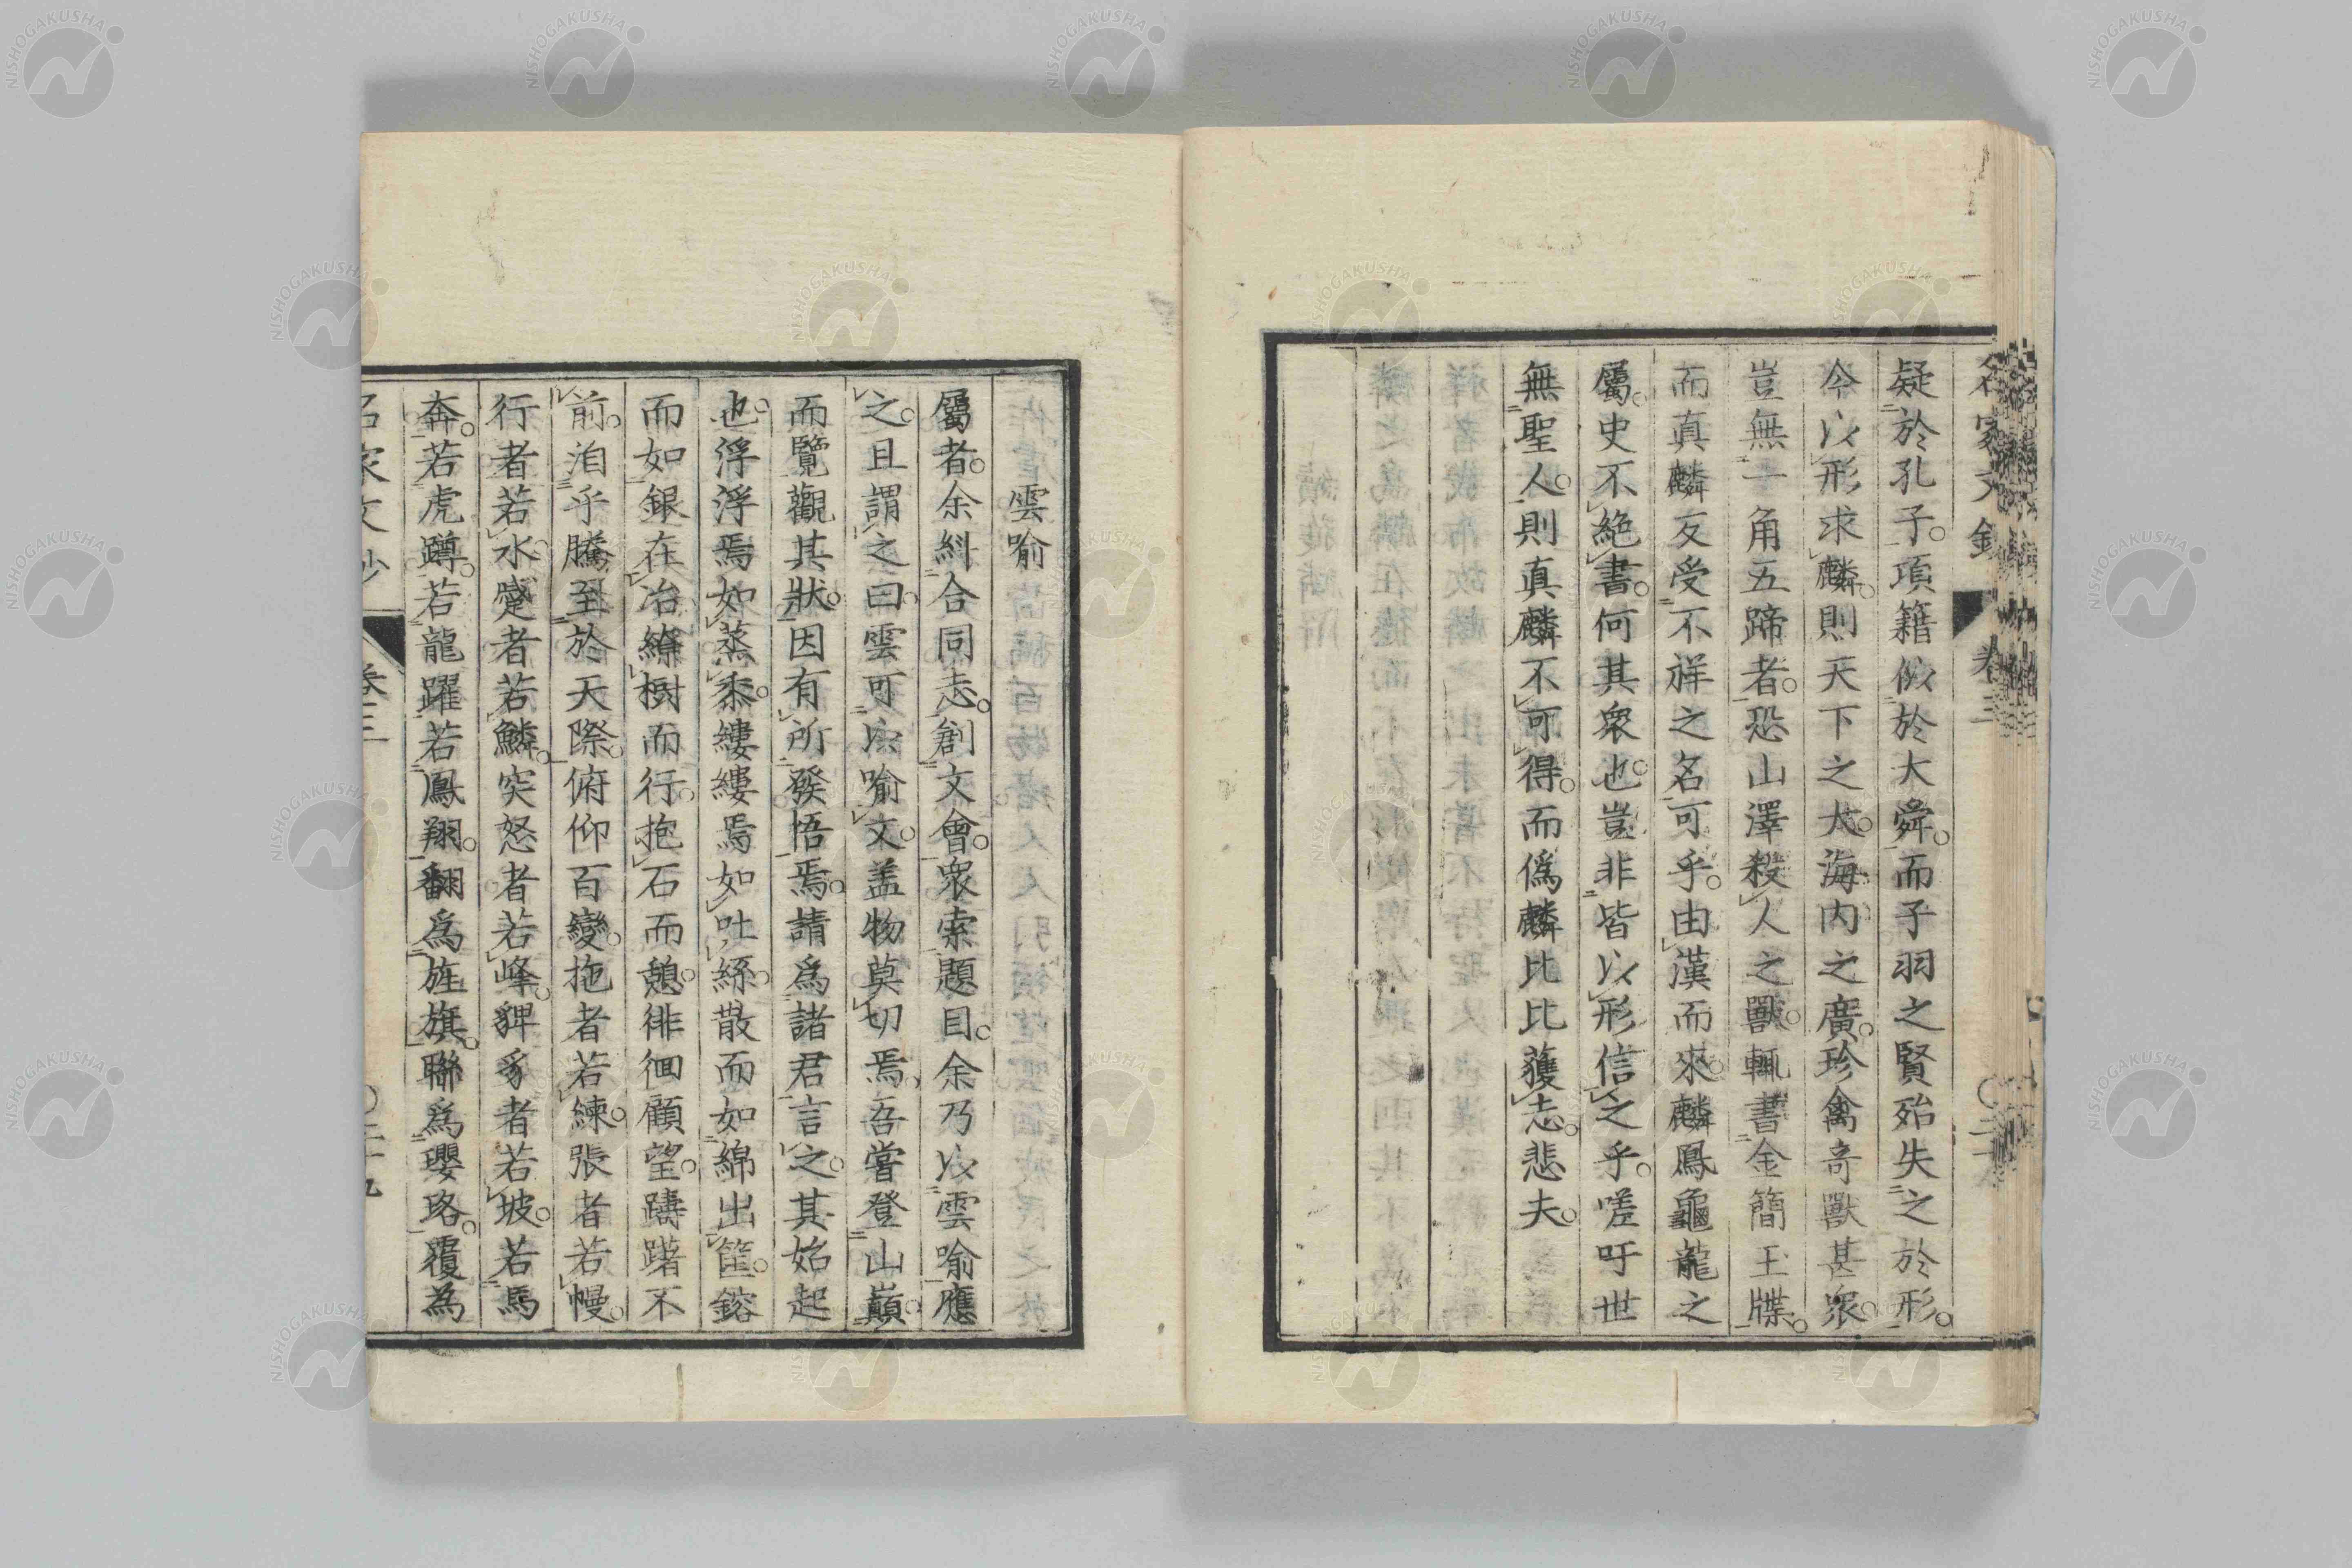 疑於孔子項籍似於大舜而子羽之賢殆失之於形
今以形求麟則天下之大海内之廣珍禽奇獸甚衆
豈無一角五蹄者恐山澤殺人之獸輒書金簡玉牒
而真麟反受不祥之名可乎由漢而來麟鳳龜龍之
屬史不絶書何其衆也豈非皆以形信之乎嗟吁世
無聖人則真麟不可得而偽麟比比獲志悲夫
雲喻
屬者余糾合同志創文會衆索題目余乃以雲喻應
之且謂之曰雲可以喻文盖物莫切焉吾嘗登山巔
而覽觀其狀因有所發悟焉請爲諸君言之其始起
也浮浮焉如蒸黍縷縷焉如吐絲散而如綿出筐鎔
而如銀在冶繚樹而行抱石而憩徘徊顧望躊躇不
前洎乎騰至於天際俯仰百變拖者若練張者若幔
行者若水蹙者若鱗突怒者若峰猈豸者若坡若馬
奔若虎蹲若龍躍若鳳翔翻爲旌旗聯爲瓔珞覆為
名家文鈔 卷三
NISHOGAKUSHA